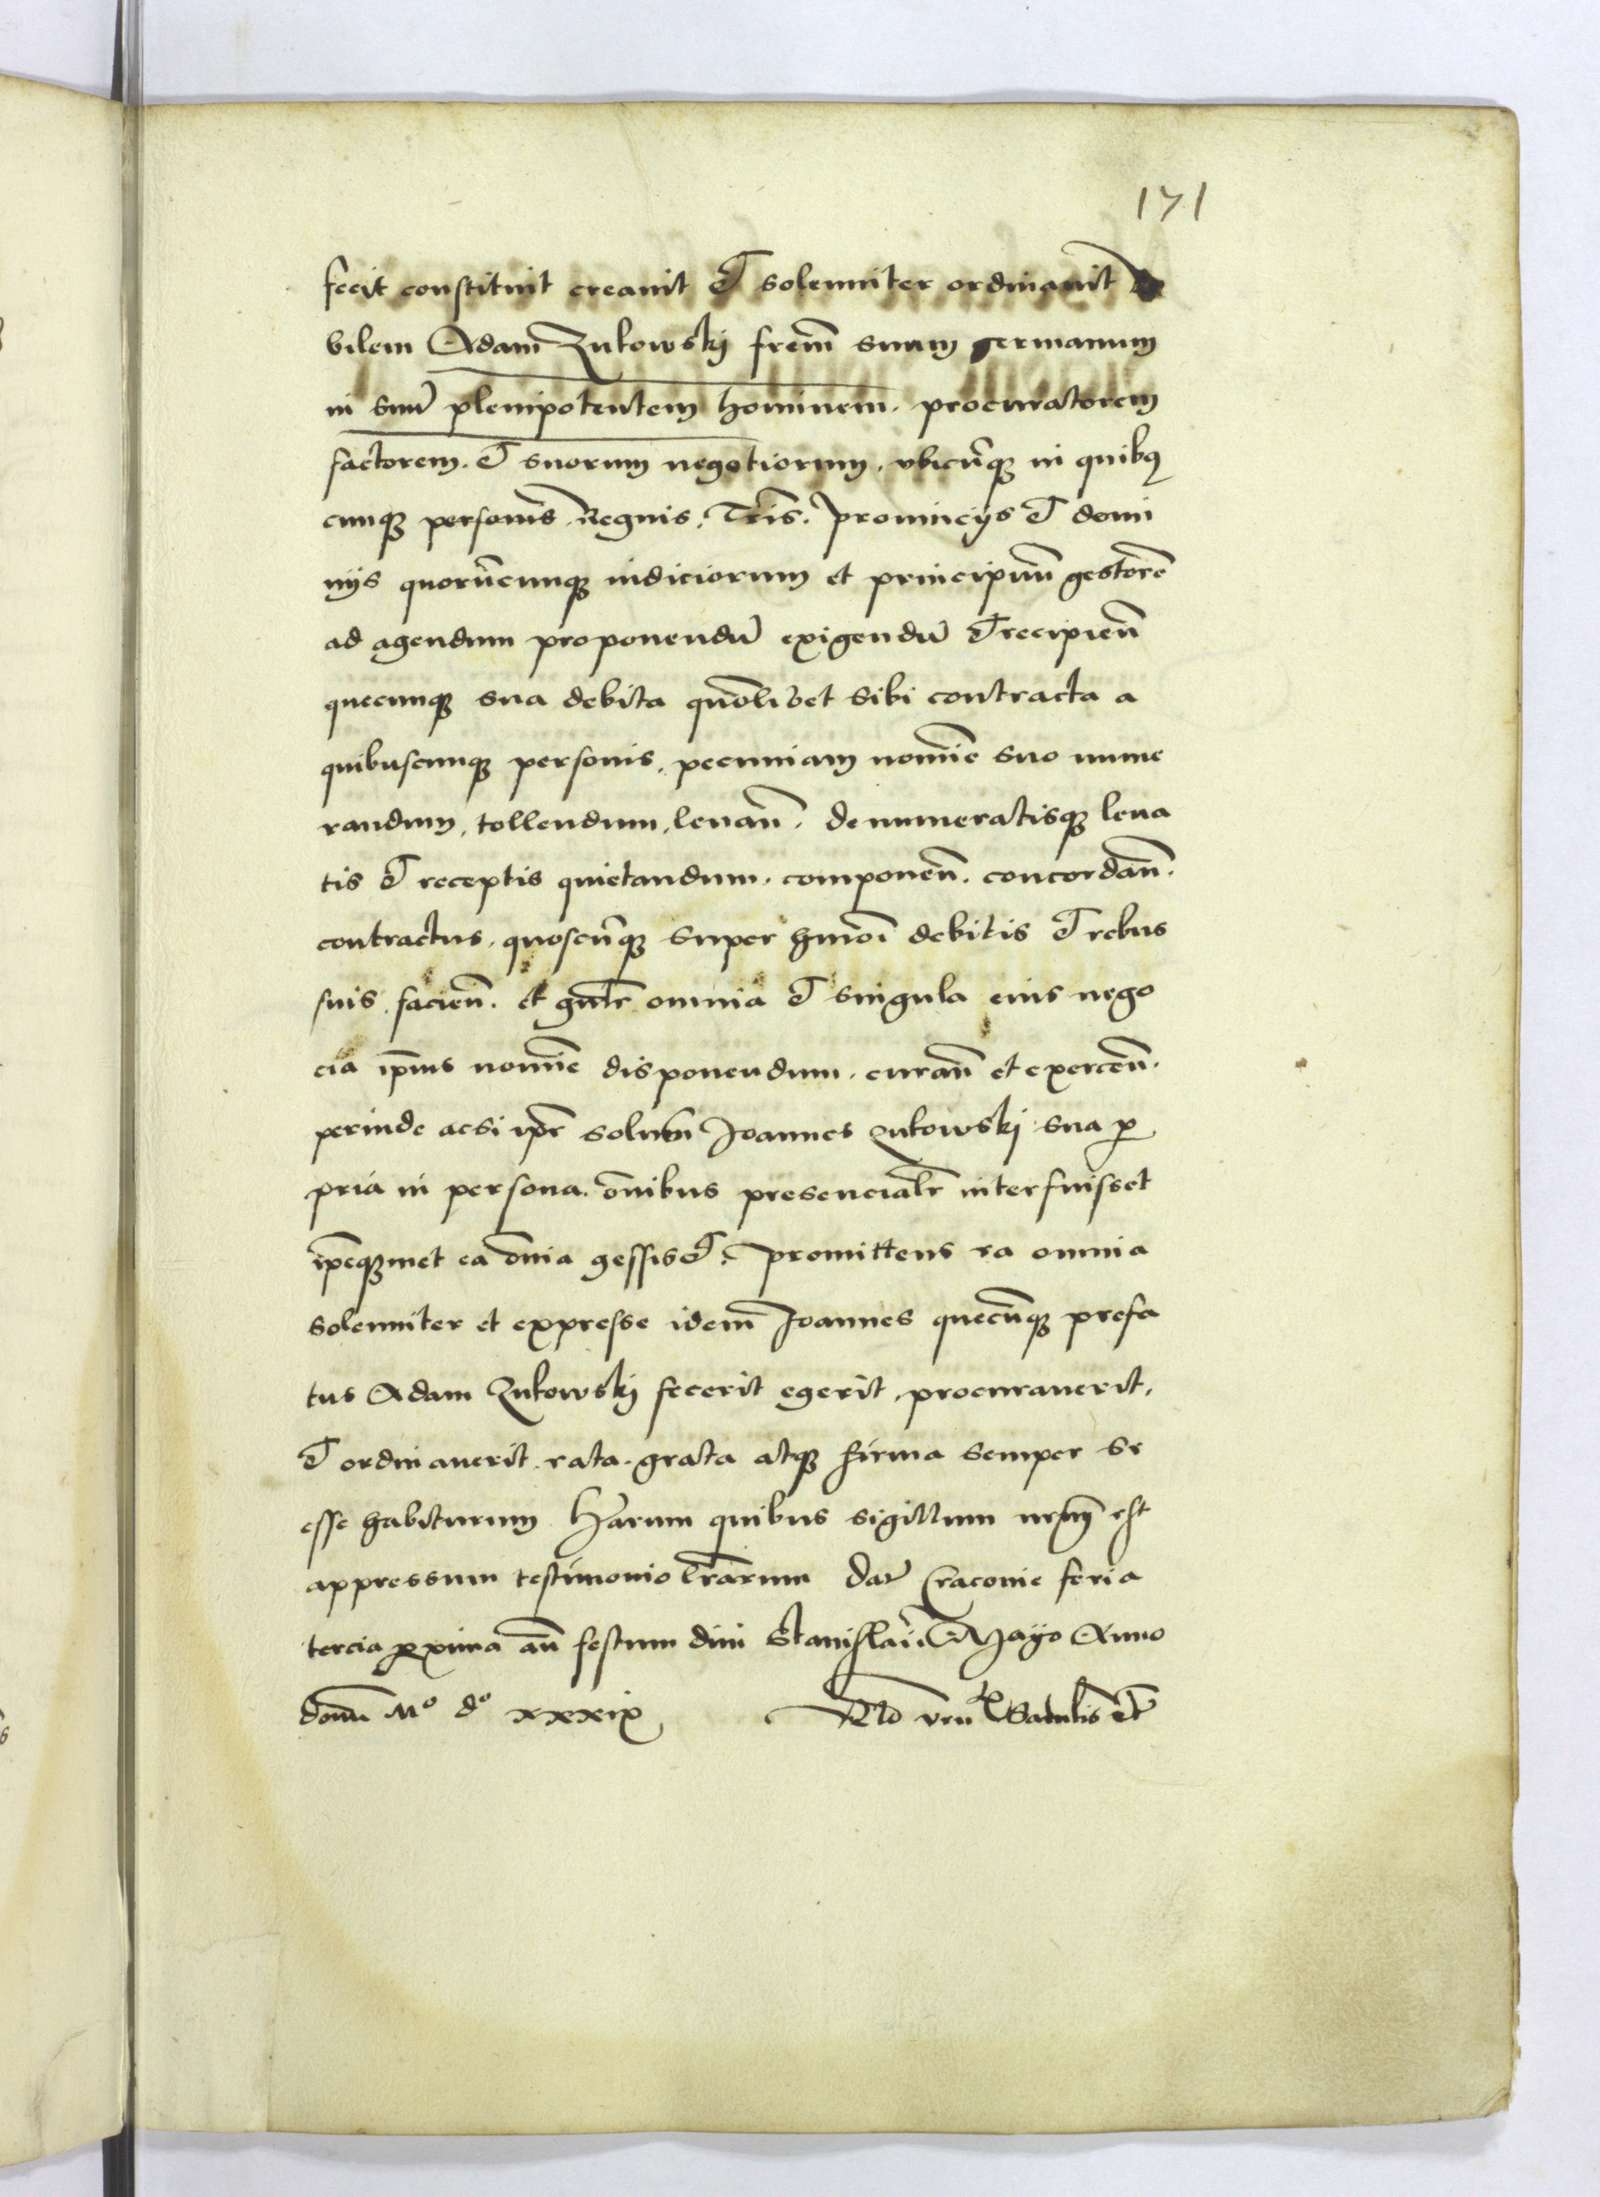 171
fecit constituit creauit et solemniter ordinauit
bilem Adam Zukowskij frem suum germanum
in suu plenipotentem hominem. procuratorem
factorem. et suorum negotiorum. vbicuqz in quibus
cunqz personis, Regnis, Tris. Prouincijs et domi
nijs quorucunqz iudiciorum et principum gestore
ad agendum proponendu exigendu et recipien
quecunqz sua debita quolibet sibi contracta a
quibuscunqz personis, pecuniam nomie suo nume
randum, tollendum, leuan. de numeratisqz leua
tis et receptis quietandum. componen. concordan.
contractus. quoscuqz super hmoi debitis et rebus
suis facien. et gnlr omnia et singula eius nego
cia ipius nomie disponendum. curan et exercen.
perinde acsi ipe solum Joannes Zukowskj sua pro
pria in persona. oibus presencialr interfuisset
ipeqzmet ea oia gessiset. Promittens ea omnia
solemniter et expresse idem Joannes quecuqz prefa
tus Adam Zukowskij fecerit egerit, procurauerit,
et ordinauerit. rata. grata atqz firma semper se
esse habiturum Harum quibus sigillum nrm est
appressum testimonio lrarum Dat Cracouie feria
tercia proxima an festum diui Stanislai Mayo Anno
domi Mo do xxxix